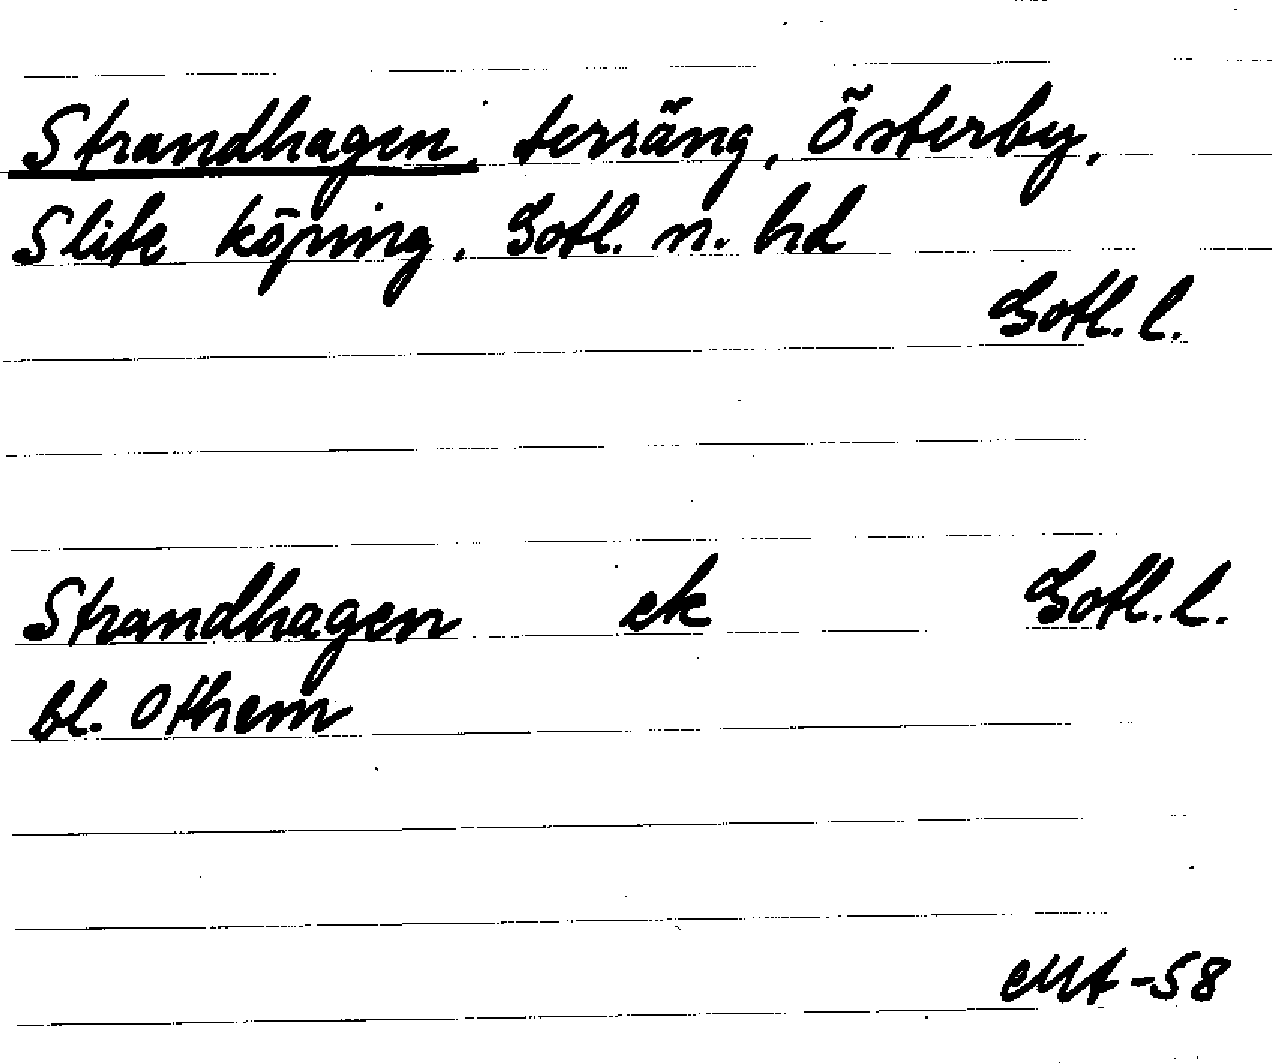 Strandhagen, terräng, Österby,
Slite köping, Gotl. n. hd
Gotl. l.
Strandhagen ek Gotl. l.
bl. Othem
MA -58